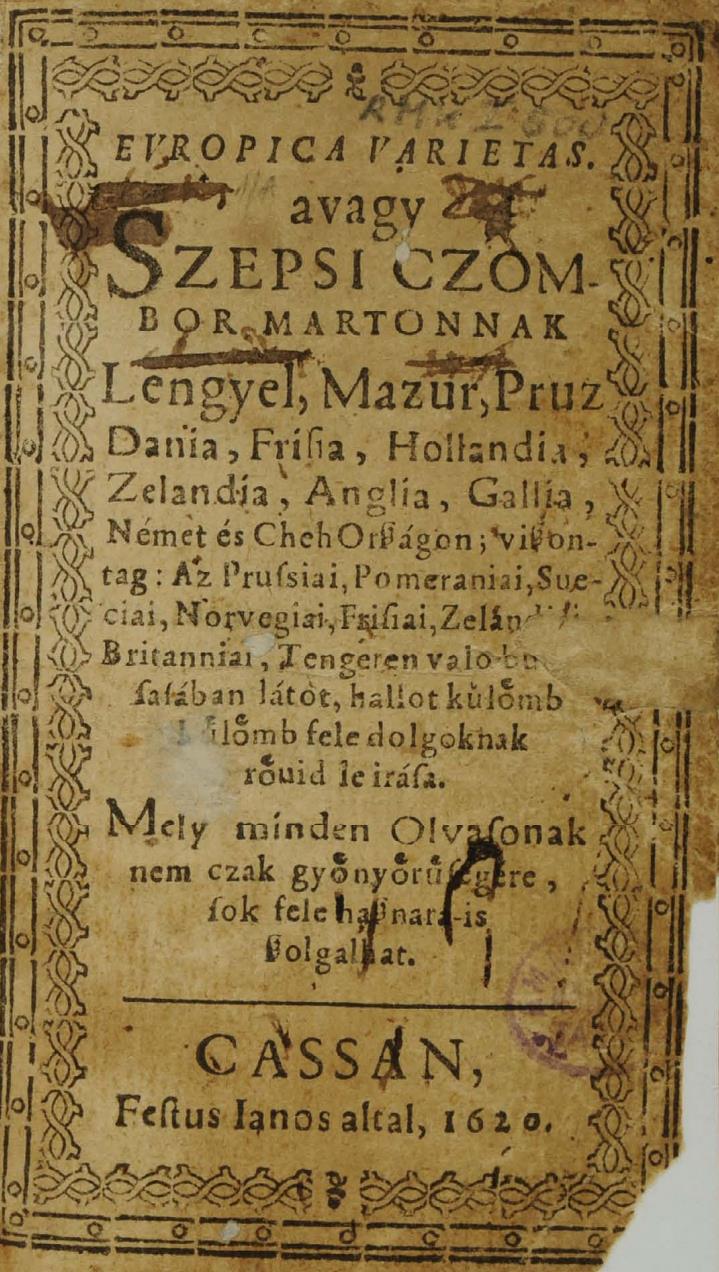 EVROPICA VARIETAS.
avagy
SZEPSI CZOM-
BOR MARTONNAK
Lengyel, Mazur, Pruz
Dania, Friſia, Hollandia,
Zelandia, Anglia, Gallia,
Német és Cheh Orßágon; vißon-
tag: Az Pruſsiai, Pomeraniai, Sue-
ciai, Norvegiai, Friſiai,
Britanniai, Tengeren valo
ſaſában látot, hallot kůlőmb
fele dolgoknak
rőuid le iráſa.
Mely minden Olvaſonak
nem czak győnyőrűſegere,
ſok fele haßnara-is
ßolgalhat.
CASSAN,
Feſtus Ianos altal, 1620.